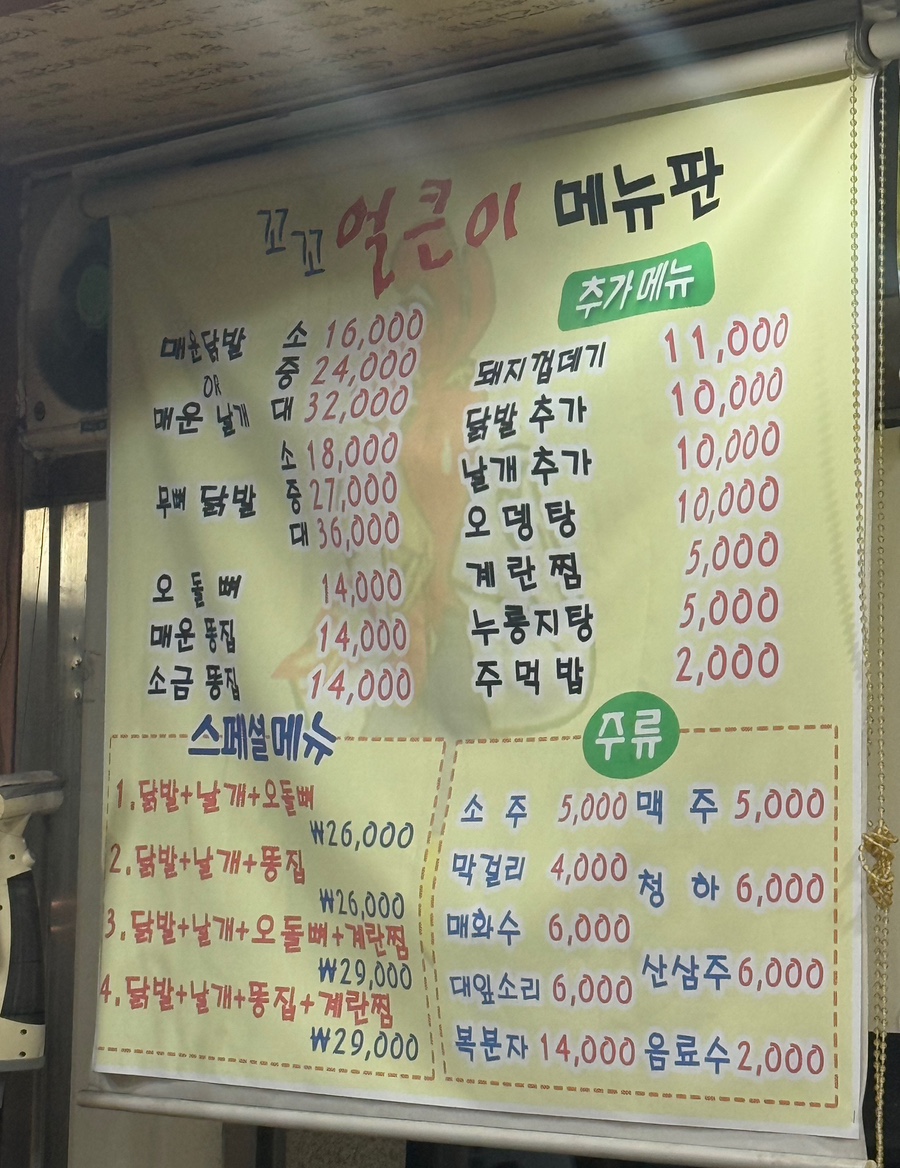 꼬꼬 얼큰이 메뉴판
매운닭발 소 16,000
OR 중 24,000
매운 날개 대 32,000
소 18,000
무뼈 닭발 중 27,000
대 36,000
오돌뼈 14,000
매운 똥집 14,000
소금 똥집 14,000
추가메뉴
돼지껍데기 11,000
닭발 추가 10,000
날개 추가 10,000
오뎅탕 10,000
계란찜 5,000
누룽지탕 5,000
주먹밥 2,000
스페셜메뉴
1. 닭발+날개+오돌뼈
₩26,000
2. 닭발+날개+똥집
₩26,000
3. 닭발+날개+오돌뼈+계란찜
₩29,000
4. 닭발+날개+똥집+계란찜
₩29,000
주류
소주 5,000 맥주 5,000
막걸리 4,000 청하 6,000
매화수 6,000
대잎소리 6,000 산삼주 6,000
복분자 14,000 음료수 2,000